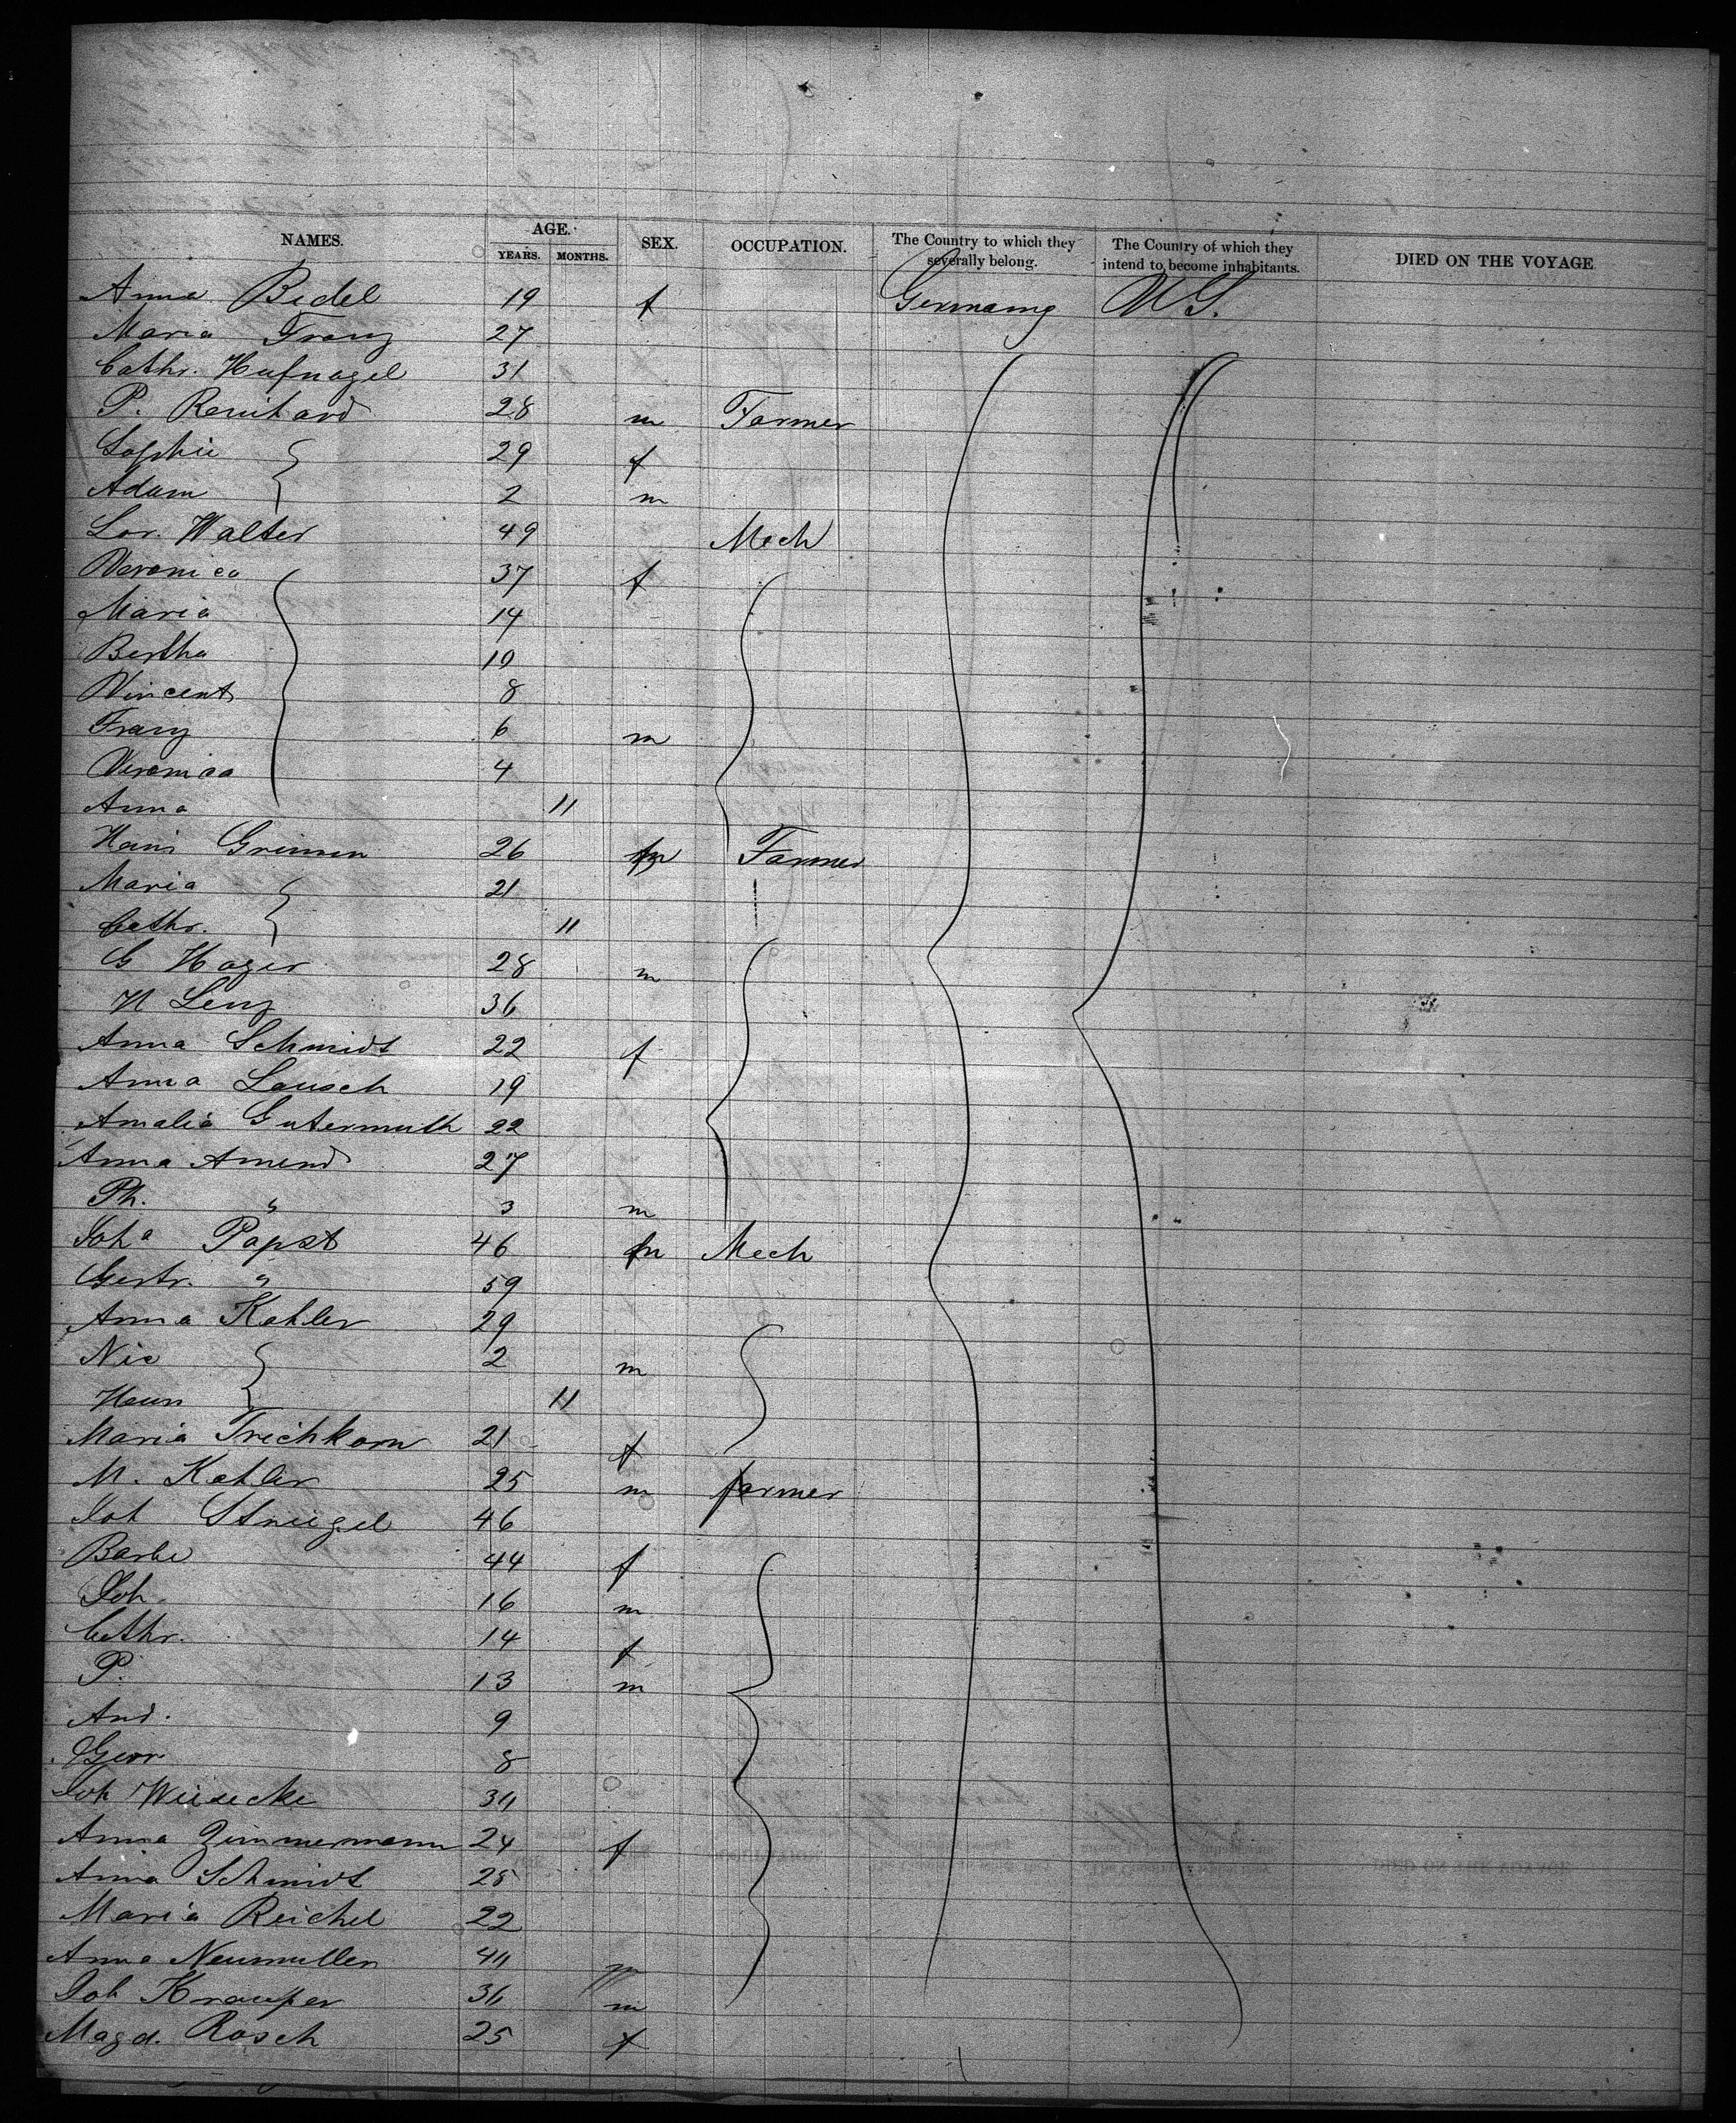 NAMES. AGE. SEX. OCCUPATION. The Country to which they severally belong. The Country of which they intend to become inhabitants. DIED ON THE VOYAGE
YEARS. MONTHS.
Anna Bedel 19 f Germany U S.
Maria Franz 27
Cathr. Hufnagel 31
P. Reinhard 28 m Farmer
Sophie 29 f
Adam 2 m
Lor. Walter 49 Mech
Veronica 37 f
Maria 14
Bertha 10
Vincent 8
Franz 6 m
Veronica 4
Anna 11
Hans Grimm 26 m Farmer
Maria 21
Cathr. 11
G Hager 28 m
N Lenz 36
Anna Schmidt 22 f
Anna Lausch 19
Amalia Gutermuth 22
Anna Amend 27
Ph. " 3 m
Joha Papst 46 m Mech
Gertr. " 59
Anna Kohler 29
Nic 2 m
Heun 11
Maria Trichkorn 21 f
M. Kohler 25 m farmer
Joh Striegel 46
Barbe 44 f
Joh. 16 m
Cathr. 14 f
P. 13 m
And. 9
8
Joh Wiesecke
Anna Zimmermann 24 f
Anna Schmidt 25
Maria Reichel 22
Anna Neumuller
Joh m
Magd. Rosch 25 f